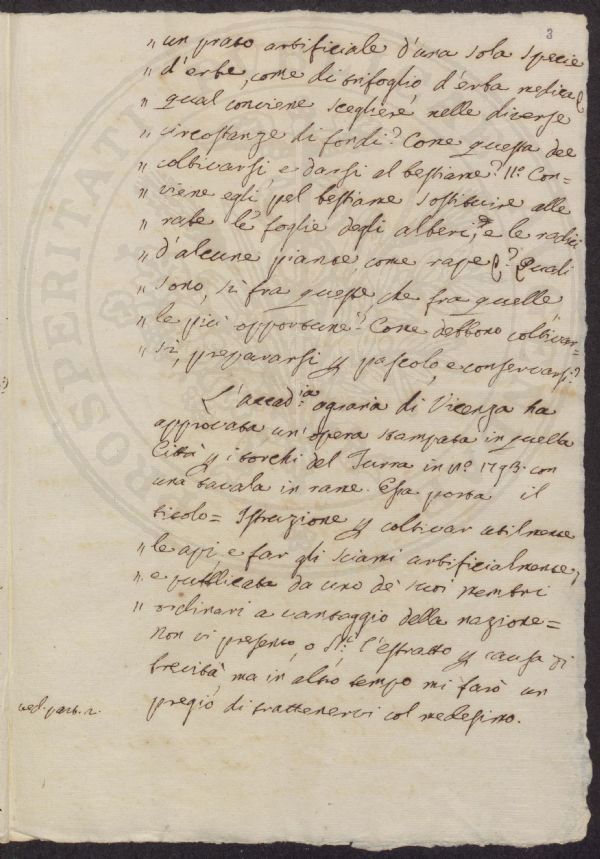 3
„ un prato artificiale d'una sola specie
„ d'erbe, come di trifoglio d'erba medica?
„ qual conviene scegliere nelle diverse
„ circostanze di fondi? Come questa dee
„ coltivarsi, e darsi al bestiame? II.o Con=
„ viene egli pel bestiame sostituire alle
„ rabe le foglie degli alberi, e le radici
„ d'alcune piante come rape? Quali
„ sono, sì fra queste, che fra quelle
„ le più opportune? Come debbono coltivar=
„ si, prepararsi p pascolo, e conservarsi?
L'accad.ia agraria di Vicenza ha
approvata un'opera stampata in quella
Città p i torchi del Turra in 4.o 1793. con
una tavola in rame. Essa porta il
titolo = Istruzione p coltivar utilmente
„ le api e far gli sciami artificialmente,
„ e pubblicata da uno de' suoi membri
„ ordinari a vantaggio della nazione =
non vi presento, o SS.ri l'estratto p causa di
brevità, ma in altro tempo mi farò un
pregio di trattenervi col medesimo.
ved. part. 2.
PROSPERITATI